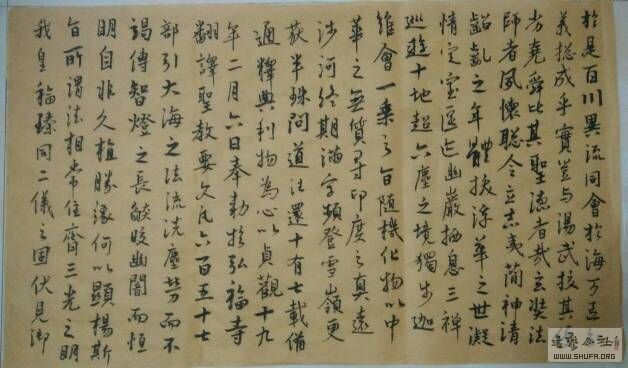 於是百川異流同會於海万區
義總成乎實豈与湯武挍其
劣堯舜比其聖德者哉玄奘法
師者夙懷聡令立志夷簡神清
齠齔之年體拔浮華之世凝
情定室匿迹幽巖栖息三禪
巡遊十地超六塵之境獨步迦
維會一乘之旨随機化物以中
華之無質尋印度之真遠
涉河終期滿字頻登雪嶺更
獲半珠問道往還十有七載備
通釋典利物為心以貞觀十九
年二月六日奉勅於弘福寺
翻譯聖教要文凡六百五十七
部引大海之法流洗塵勞而不
竭傳智燈之長燄皎幽闇而恒
明自非久植勝緣何以顯揚斯
旨所謂法相常住齊三光之明
我皇福臻同二儀之固伏見御
WWW.SHUFA.ORG